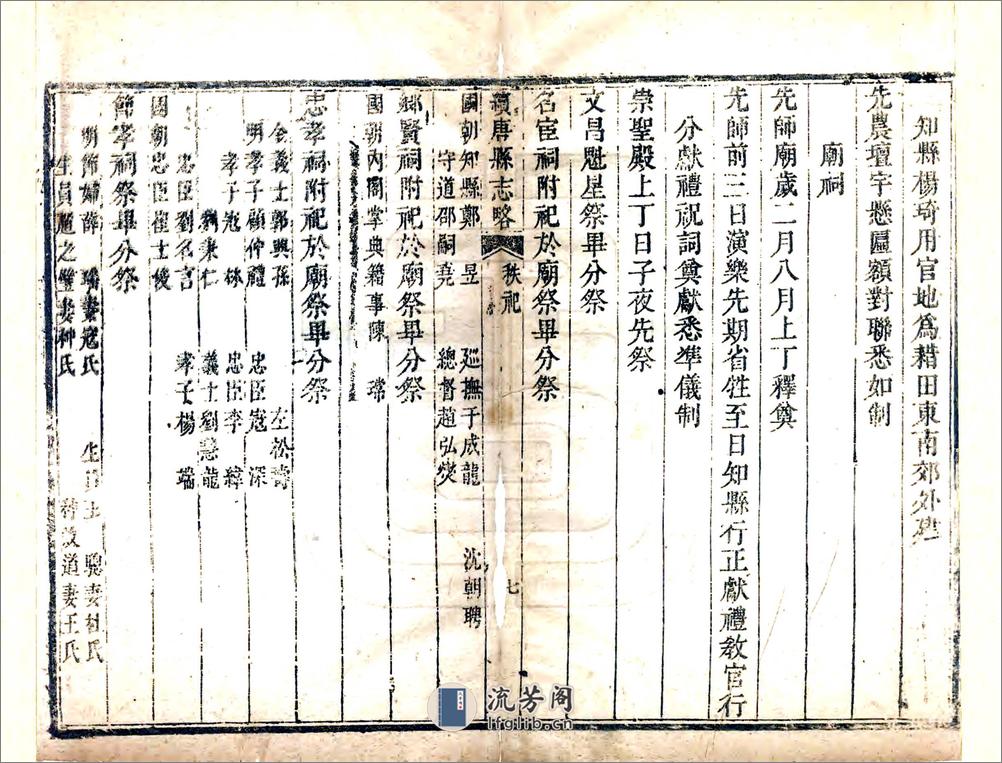 知縣楊琦用官地爲耤田東南郊外建
先農壇宇懸匾額對聯悉如制
廟祠
先師廟歲二月八月上丁釋奠
先師前三日演樂先期省牲至日知縣行正獻禮教官行
分獻禮祝詞奠獻悉準儀制
崇聖殿上丁日子夜先祭
文昌魁星祭畢分祭
名宦祠附祀於廟祭畢分祭
續唐縣志略 秩祀 七
國朝知縣鄭 昱 巡撫于成龍 沈朝聘
守道邵嗣堯 總督趙弘燮
鄉賢祠附祀於廟祭畢分祭
國朝內閣掌典籍事陳 瑺
忠孝祠附祀於廟祭畢分祭
金義士郭興孫 左松濤
明孝子顧仲禮 忠臣寇 深
孝子寇 林 忠臣李
秉仁 義士劉 龍
忠臣劉名言 孝子楊 瑞
國朝忠臣崔士俊
節孝祠祭畢分祭
明節婦薛 妻寇氏 生員王 聰妻杜氏
生員 之 妻种氏 道妻王氏
流芳阁
lfglib.cn